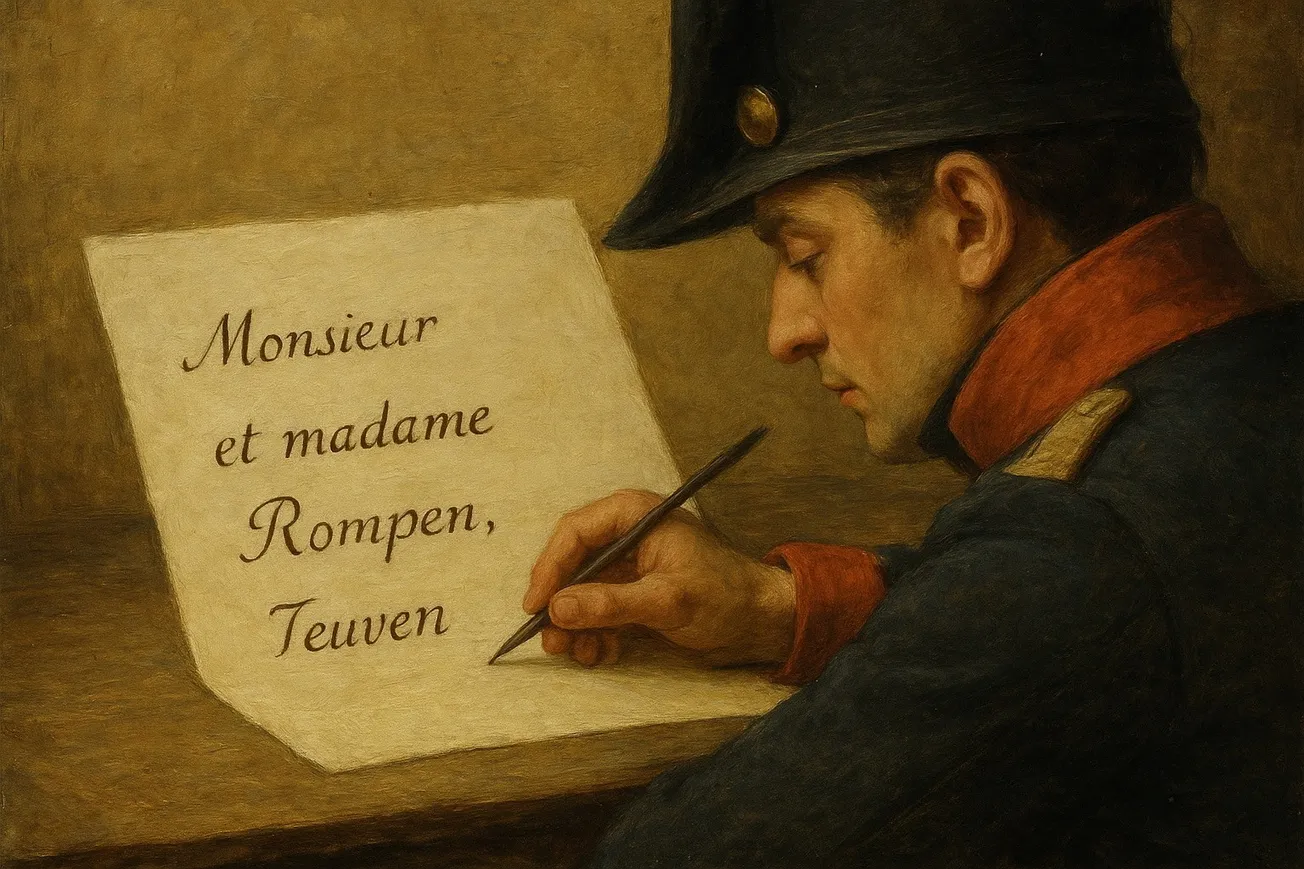 Monsieur
et madame
Rompen,
Teuven